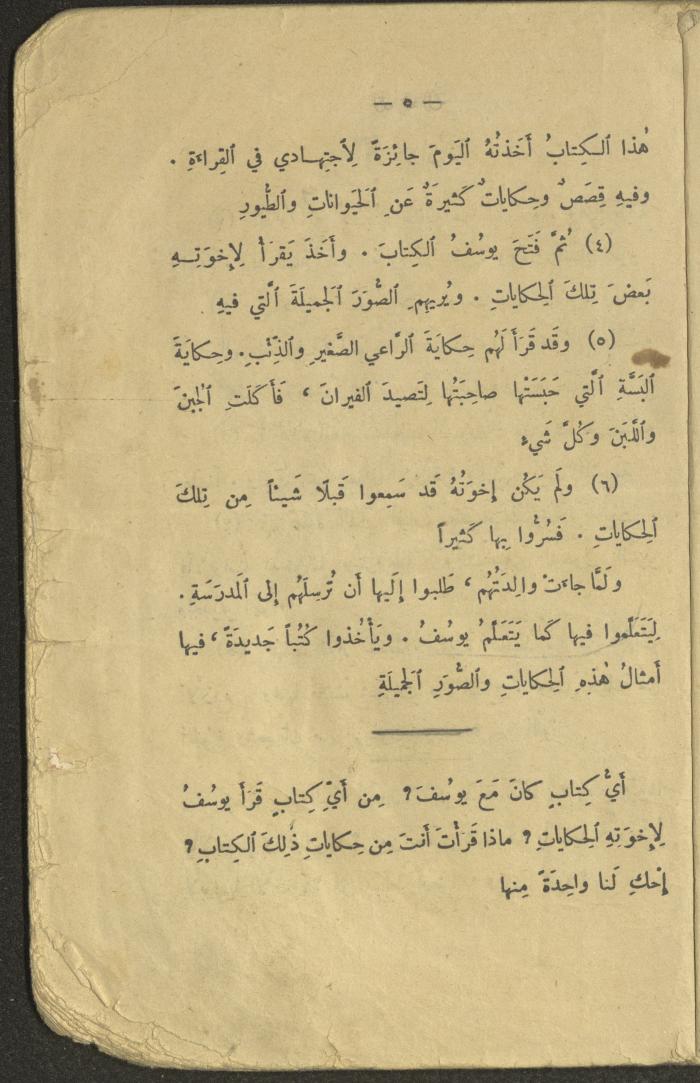 — ٥ —
هٰذا ٱلكِتابُ أَخَذتُهُ ٱليَومَ جائِزَةً لِٱجتِهادي في ٱلقِراءَةِ .
وفيهِ قِصَصٌ وحِكاياتٌ كَثيرَةٌ عَنِ ٱلحَيواناتِ وٱلطُّيورِ
(٤) ثُمَّ فَتَحَ يوسُفُ ٱلكِتابَ . وأَخَذَ يَقرَأُ لِإِخوَتِهِ
بَعضَ تِلكَ ٱلحِكاياتِ . ويُريهِمِ ٱلصُّوَرَ ٱلجَميلَةَ ٱلَّتي فيهِ
(٥) وقَد قَرَأَ لَهُم حِكايَةَ ٱلرَّاعي ٱلصَّغيرِ وٱلذِّئْبِ . وحِكايَةَ
ٱلبَسَّةِ ٱلَّتي حَبَسَتْها صاحِبَتُها لِتَصيدَ ٱلفيرانَ ، فَأَكَلَتِ ٱلجُبنَ
وٱللَّبَنَ وكُلَّ شَيءٍ
(٦) ولَم يَكُن إِخوَتُهُ قَد سَمِعوا قَبلًا شَيئاً مِن تِلكَ
ٱلحِكاياتِ . فَسُرُّوا بِها كَثيراً
ولَمَّا جاءَتْ والِدَتُهُم ، طَلَبوا إِلَيها أَن تُرسِلَهُم إِلى ٱلمَدرَسَةِ .
لِيَتَعَلَّموا فيها كَما يَتَعَلَّمُ يوسُفُ . ويَأْخُذوا كُتُباً جَديدَةً ، فيها
أَمثالُ هٰذِهِ ٱلحِكاياتِ وٱلصُّوَرِ ٱلجَميلَةِ
أَيُّ كِتابٍ كانَ مَعَ يوسُفَ ? مِن أَيِّ كِتابٍ قَرَأَ يوسُفُ
لِإِخوَتِهِ ٱلحِكاياتِ ? ماذا قَرَأْتَ أَنتَ مِن حِكاياتِ ذٰلِكَ ٱلكِتابِ ?
إِحْكِ لَنا واحِدَةً مِنها